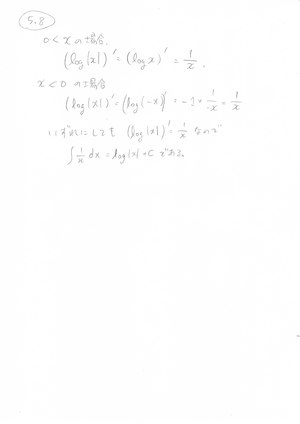 5.8
0 < x の場合、
(log|x|)' = (log x)' = 1/x .
x < 0 の場合
(log|x|)' = (log(-x))' = -1 × 1/-x = 1/x
いずれにしても (log|x|)' = 1/x なので
∫ 1/x dx = log|x| + C である。